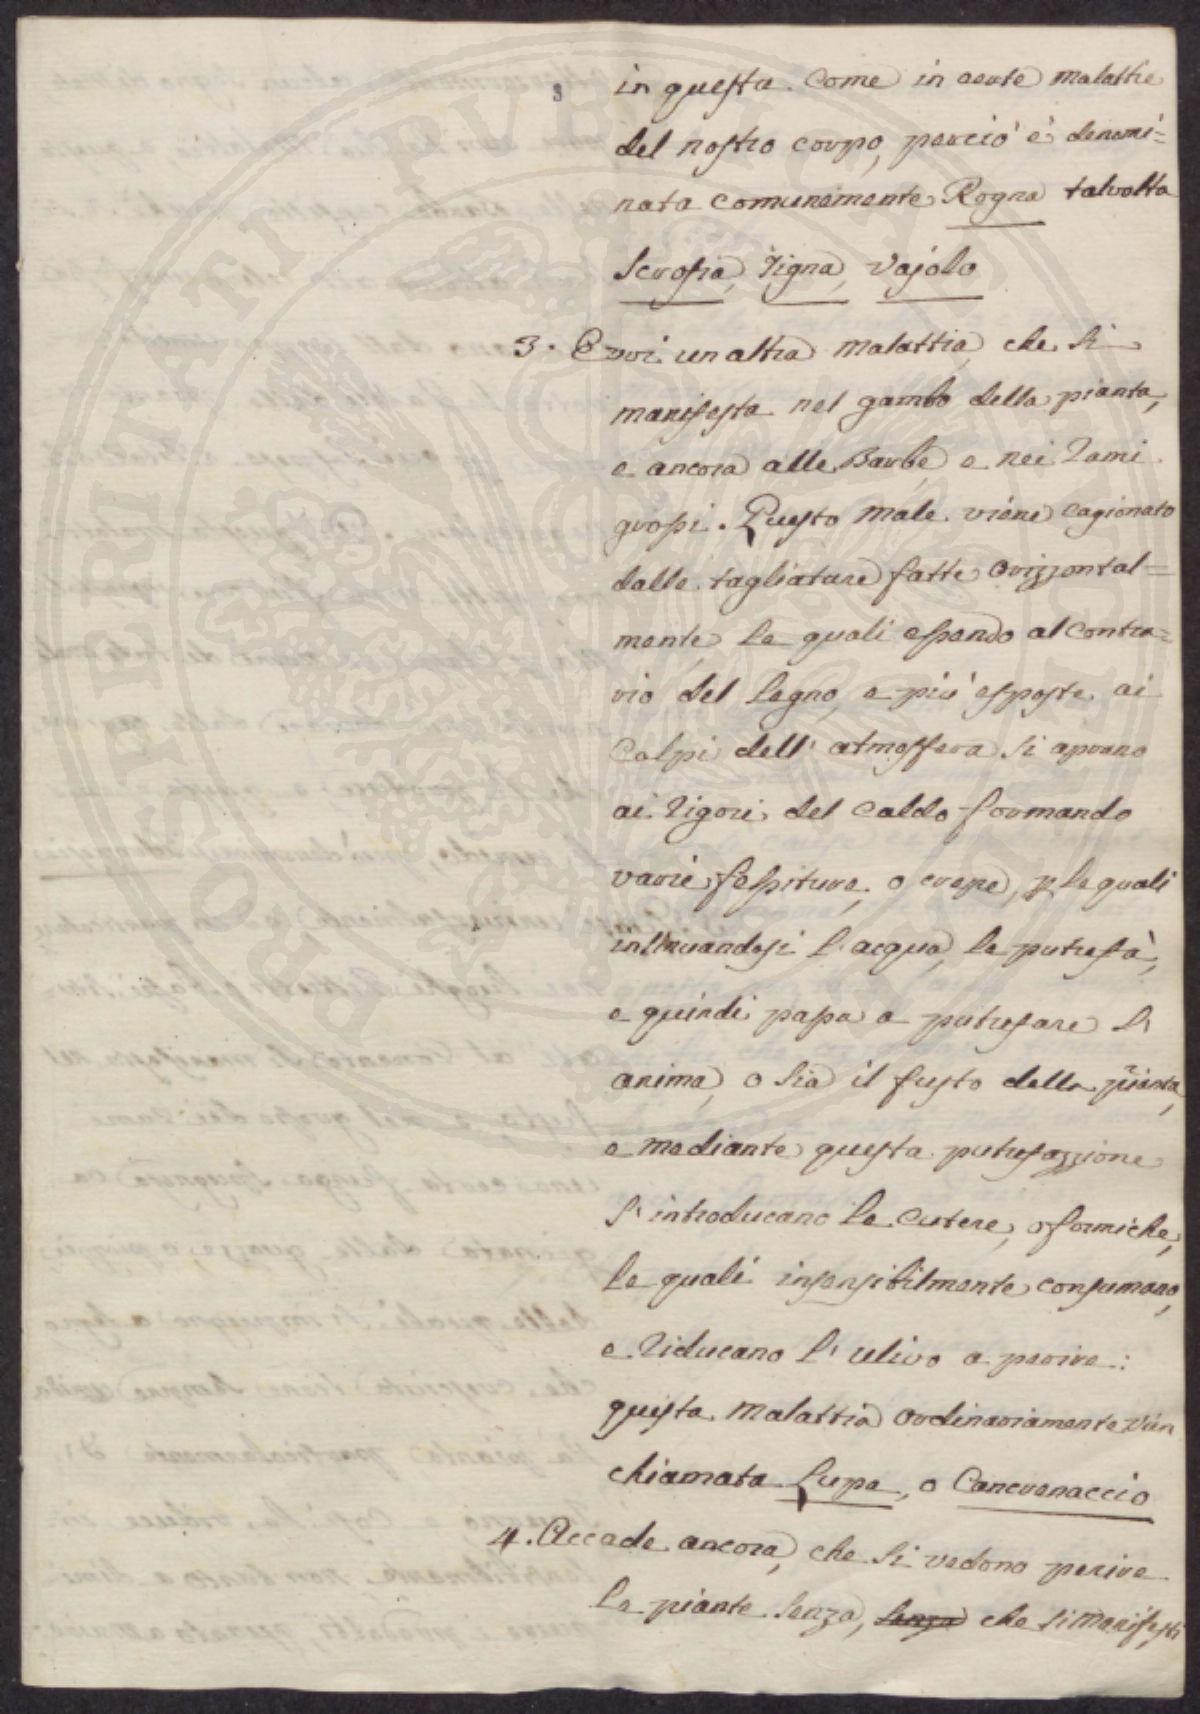 3
in questa. Come in certe malattie
del nostro corpo, perciò è denomi=
nata comunemente Rogna talvolta
Scrofia, Tigna, Vajolo
3. Evvi un altra malattia, che si
manifesta nel gambo della pianta,
e ancora alle Barbe, e nei rami
grossi. Questo male viene cagionato
dalle tagliature fatte orizzontal=
mente, le quali essendo al contra=
rio del legno, e più esposte ai
Colpi dell' atmosfera si aprano
ai rigori del caldo formando
varie fessiture, o crepe, p le quali
insinuandosi l'acqua, le putrefà,
e quindi passa a putrefare l'
anima, o sia il fusto della pianta,
e mediante questa putrefazzione
s' introducano le Cutere, o formiche,
le quali insensibilmente consumano,
e riducano l' ulivo a perire:
questa malattia ordinariamente vien
chiamata Lupa, o Cancrenaccio
4. Accade ancora, che si vedono perire
le piante senza, senza che si manifesti
PROSPERITATI PVBLICAE